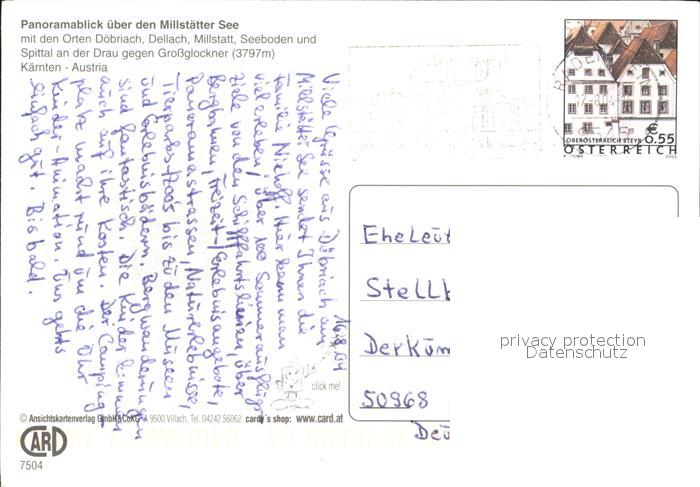 Panoramablick über den Millstätter See
mit den Orten Döbriach, Dellach, Millstatt, Seeboden und
Spittal an der Drau gegen Großglockner (3797m)
Kärnten - Austria
16.8.04
Viele Grüsse aus Döbriach am
Millstätter See sendet Ihnen die
Familie Niehoff. Hier kann man
viel erleben, über 100 Sommerausflugs-
ziele von den Schifffahrtslinien, über
Bergbahnen, Freizeit-/Erlebnisangebote,
Panoramastrassen, Naturerlebnisse,
Tierparks + Zoo's bis zu den Museen
und Erlebnisbädern. Bergwanderungen
sind fantastisch. Die Kinder kommen
auch auf ihre Kosten. Der Camping-
platz macht rund um die Uhr
Kinder-Animation. Uns gehts
einfach gut. Bis bald.
OBERÖSTERREICH STEYR
€ 0.55
ÖSTERREICH
Eheleut
Stell
Derküm
50968
Deu
privacy protection
Datenschutz
click me!
© Ansichtskartenverlag GmbH&CoKG A 9500 Villach, Tel. 04242 56062 cardy´s shop: www.card.at
CARD
7504